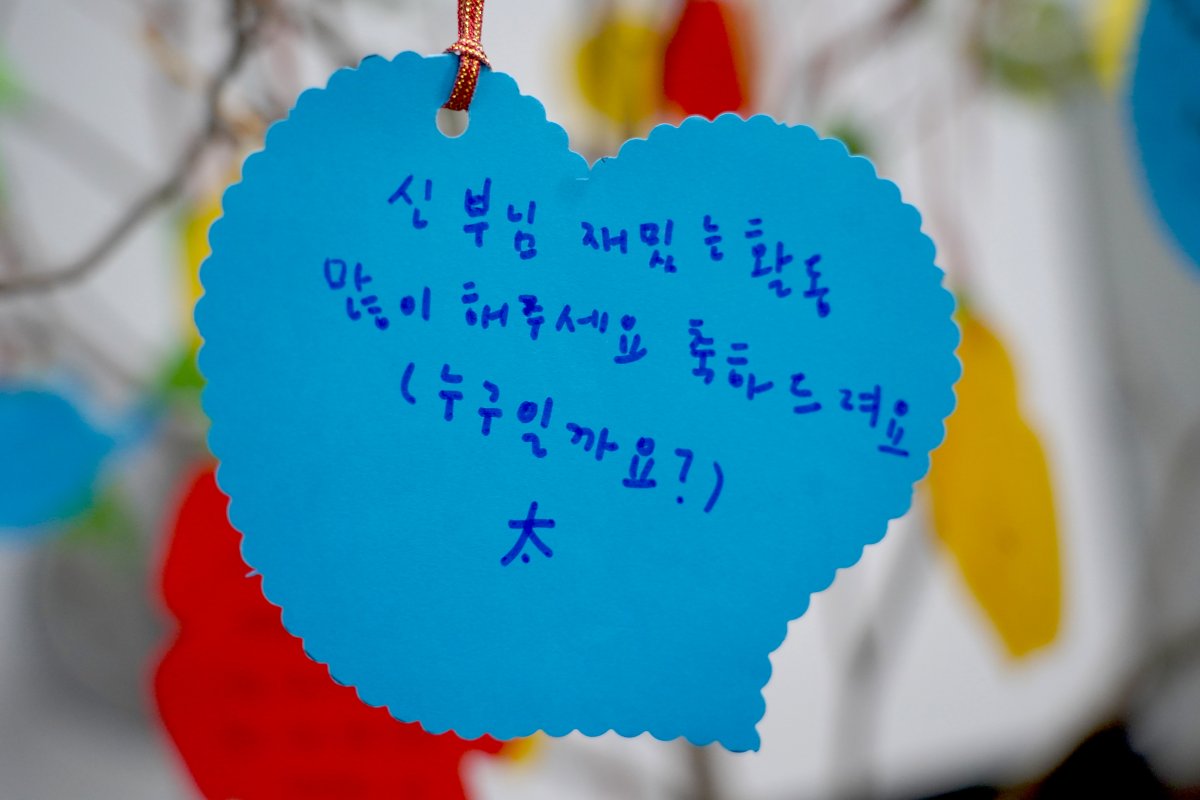 신부님 재밌는 활동
많이 해주세요 축하드려요
(누구일까요?)
太